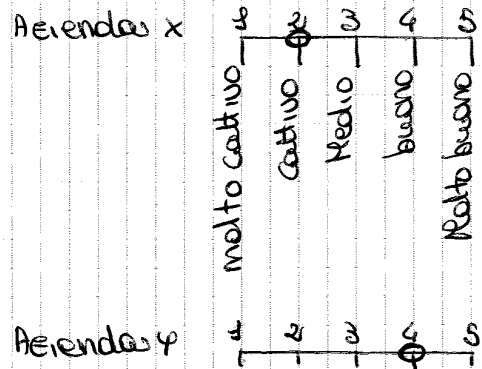 Azienda X 1 2 3 4 5
molto cattivo
cattivo
Medio
buono
Molto buono
Azienda Y 1 2 3 4 5